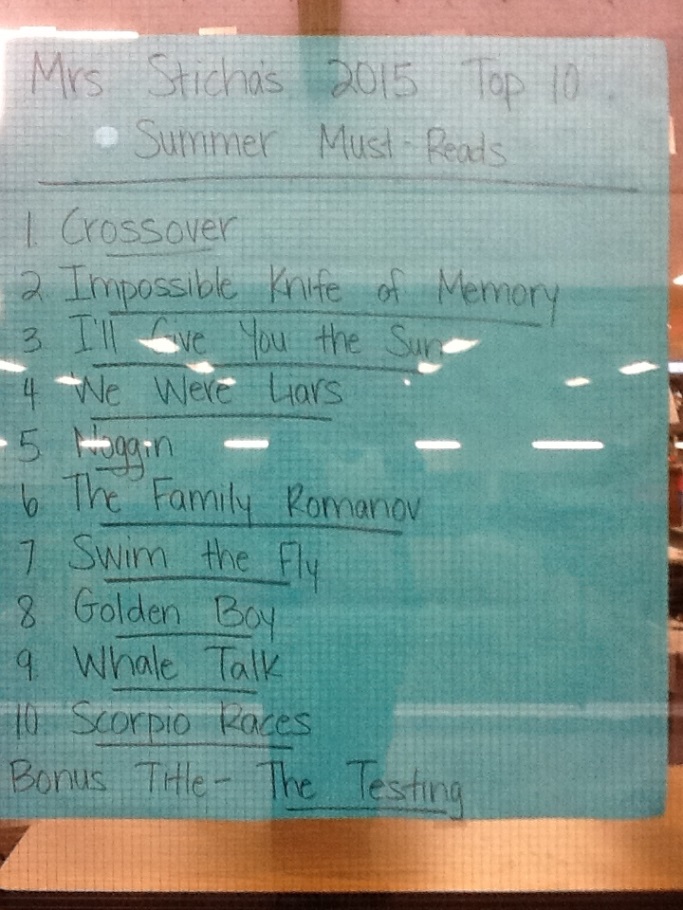 Mrs Sticha's 2015 Top 10
Summer Must-Reads
1. Crossover
2 Impossible Knife of Memory
3 I'll Give You the Sun
4 We Were Liars
5 Noggin
6 The Family Romanov
7 Swim the Fly
8 Golden Boy
9. Whale Talk
10 Scorpio Races
Bonus Title- The Testing